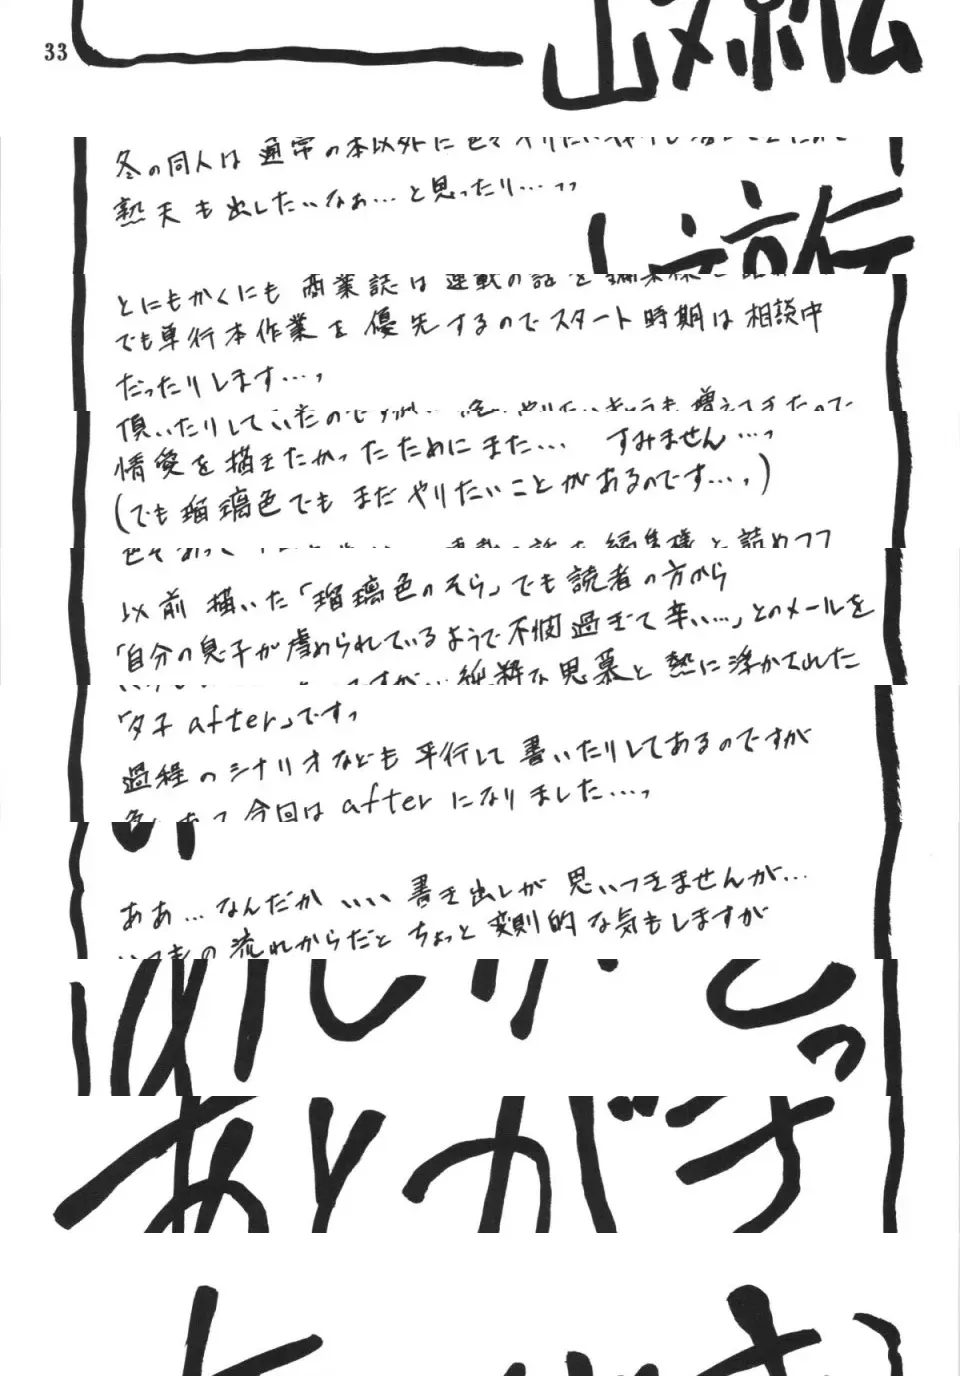 33
山文京伝
冬の同人は 通常の本以外に色々やりたい
熱天も出したいなぁ…と思ったり…っっ
とにもかくにも 商業誌は 連載の話を編集様と
でも単行本作業を優先するのでスタート時期は相談中
だったりします…っ
頂いたりしていたのですが やりたいキャラも増えてきたので
情愛を描きたかったためにまた… すみません…っ
(でも瑠璃色でもまだやりたいことがあるのです…っ)
連載の話を編集様と詰めつつ
以前描いた「瑠璃色のそら」でも読者の方から
「自分の息子が虐められているようで不憫過ぎて辛い…」とのメールを
純粋な思慕と熱に浮かされた
「夕子after」ですっ
過程のシナリオなども平行して書いたりしてあるのですが
今回はafterになりました…っ
ああ…なんだかいい書き出しが思いつきませんが…
いつもの流れからだとちょっと変則的な気もしますが
あとがき